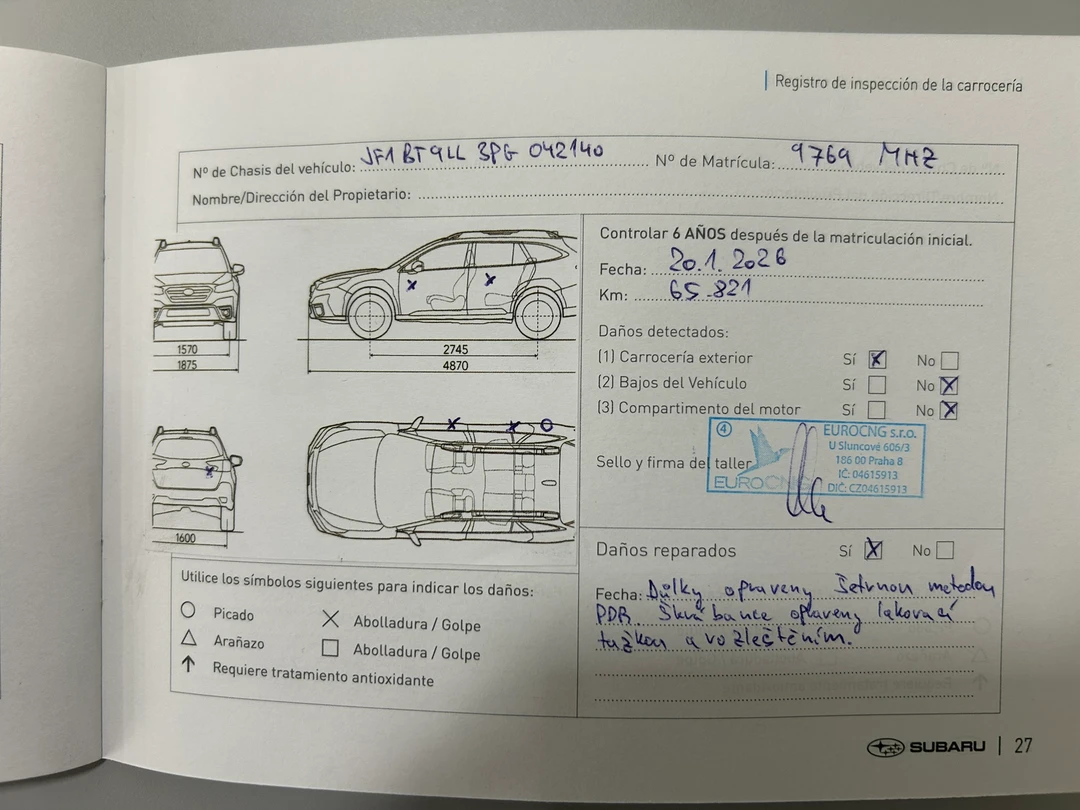 Registro de inspección de la carrocería
Nº de Chasis del vehículo: JF1 BT9LL 3PG 042140 Nº de Matrícula: 9769 MHZ
Nombre/Dirección del Propietario:
Controlar 6 AÑOS después de la matriculación inicial.
Fecha: 20.1. 2026
Km: 65.821
Daños detectados:
(1) Carrocería exterior Sí X No
(2) Bajos del Vehículo Sí No X
(3) Compartimento del motor Sí No X
Sello y firma del taller
4
EUROCNG
EUROCNG s.r.o.
U Sluncové 606/3
186 00 Praha 8
IČ: 04615913
DIČ: CZ04615913
1570
1875
2745
4870
1600
Daños reparados Sí X No
Fecha: Důlky opraveny šetrnou metodou
PDR. Škrábance opraveny lakovací
tužkou a rozleštěním.
Utilice los símbolos siguientes para indicar los daños:
Picado
Abolladura / Golpe
Arañazo
Abolladura / Golpe
Requiere tratamiento antioxidante
SUBARU | 27